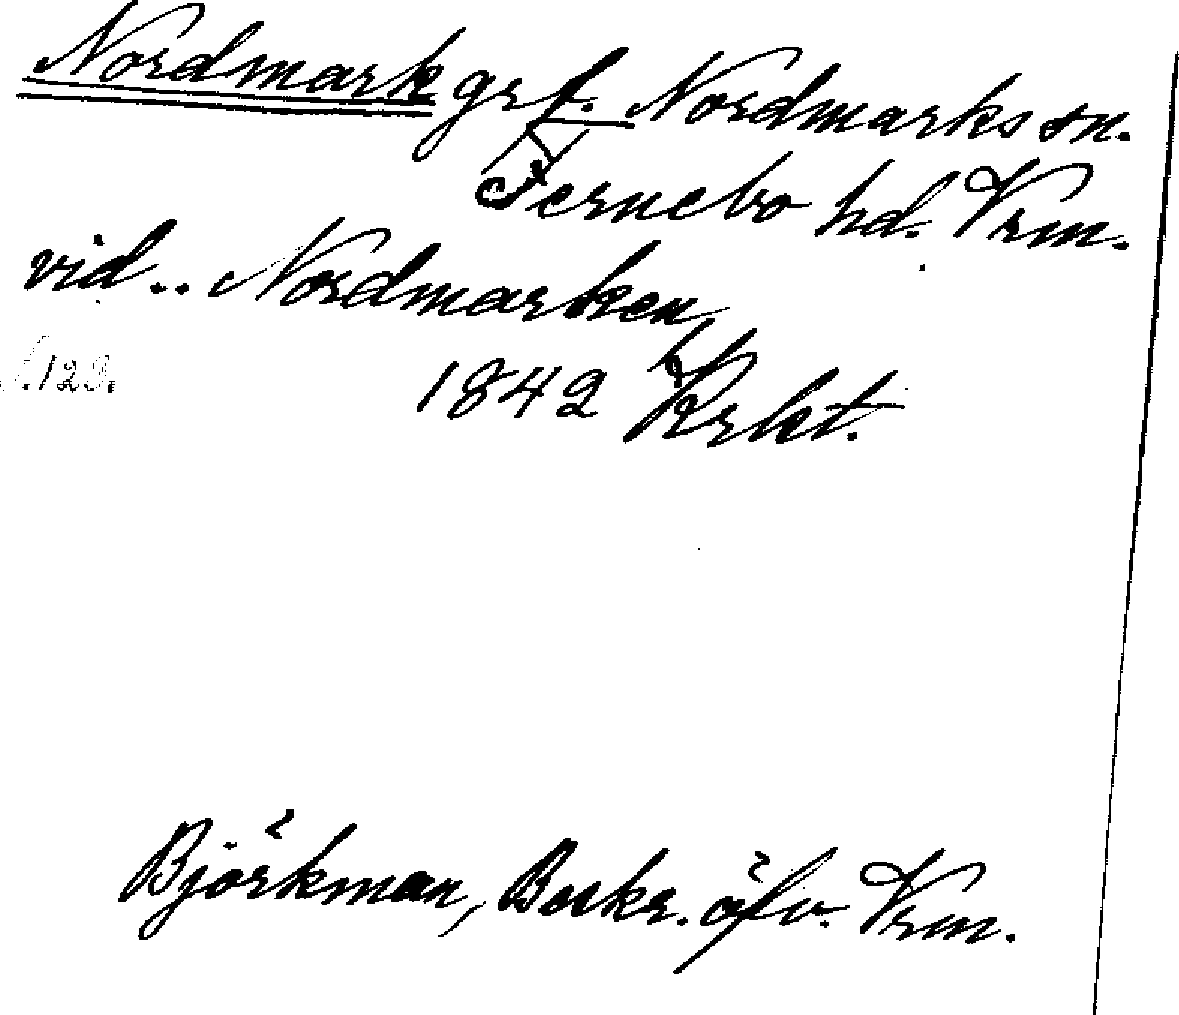 Nordmark grf. Nordmarks sn.
Fernebo hd. Vrm.
vid .. Nordmarken,
s. 129.
1842 Krkt.
Björkman, Beskr. öfv. Vrm.